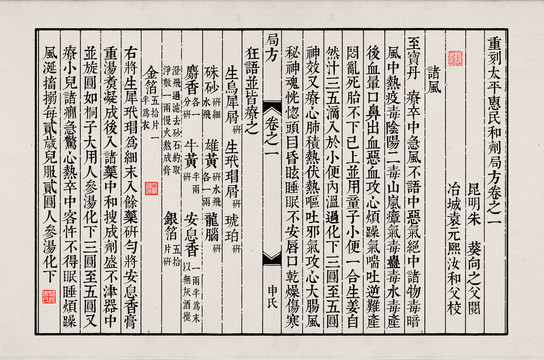 重刻太平惠民和劑局方卷之一
昆明朱 葵向之父閱
冶城袁元熙汝和父校
諸風
至寶丹 療卒中急風不語中惡氣絕中諸物毒暗
風中熱疫毒陰陽二毒山嵐瘴氣毒蠱毒水毒產
後血暈口鼻出血惡血攻心煩躁氣喘吐逆難產
悶亂死胎不下已上並用童子小便一合生姜自
然汁三五滴入於小便內溫過化下三圓至五圓
神效又療心肺積熱伏熱嘔吐邪氣攻心大腸風
秘神魂恍惚頭目昏眩睡眠不安唇口乾燥傷寒
局方 卷之一 申氏
狂語並皆療之
生烏犀屑研 生玳瑁屑研 琥珀研
硃砂研細水飛 雄黃研細水飛 龍腦研
麝香研 牛黃研 安息香一兩半為末以無灰酒攪
澄飛過濾去沙石約取淨數一兩慢火熬成膏 銀箔五十片研
金箔五拾片一半為衣
右將生犀玳瑁為細末入餘藥研勻將安息香膏
重湯煮凝成後入諸藥中和搜成劑盛不津器中
並旋圓如桐子大用人參湯化下三圓至五圓又
療小兒諸癇急驚心熱卒中客忤不得眠睡煩躁
風涎搐搦每貳歲兒服貳圓人參湯化下